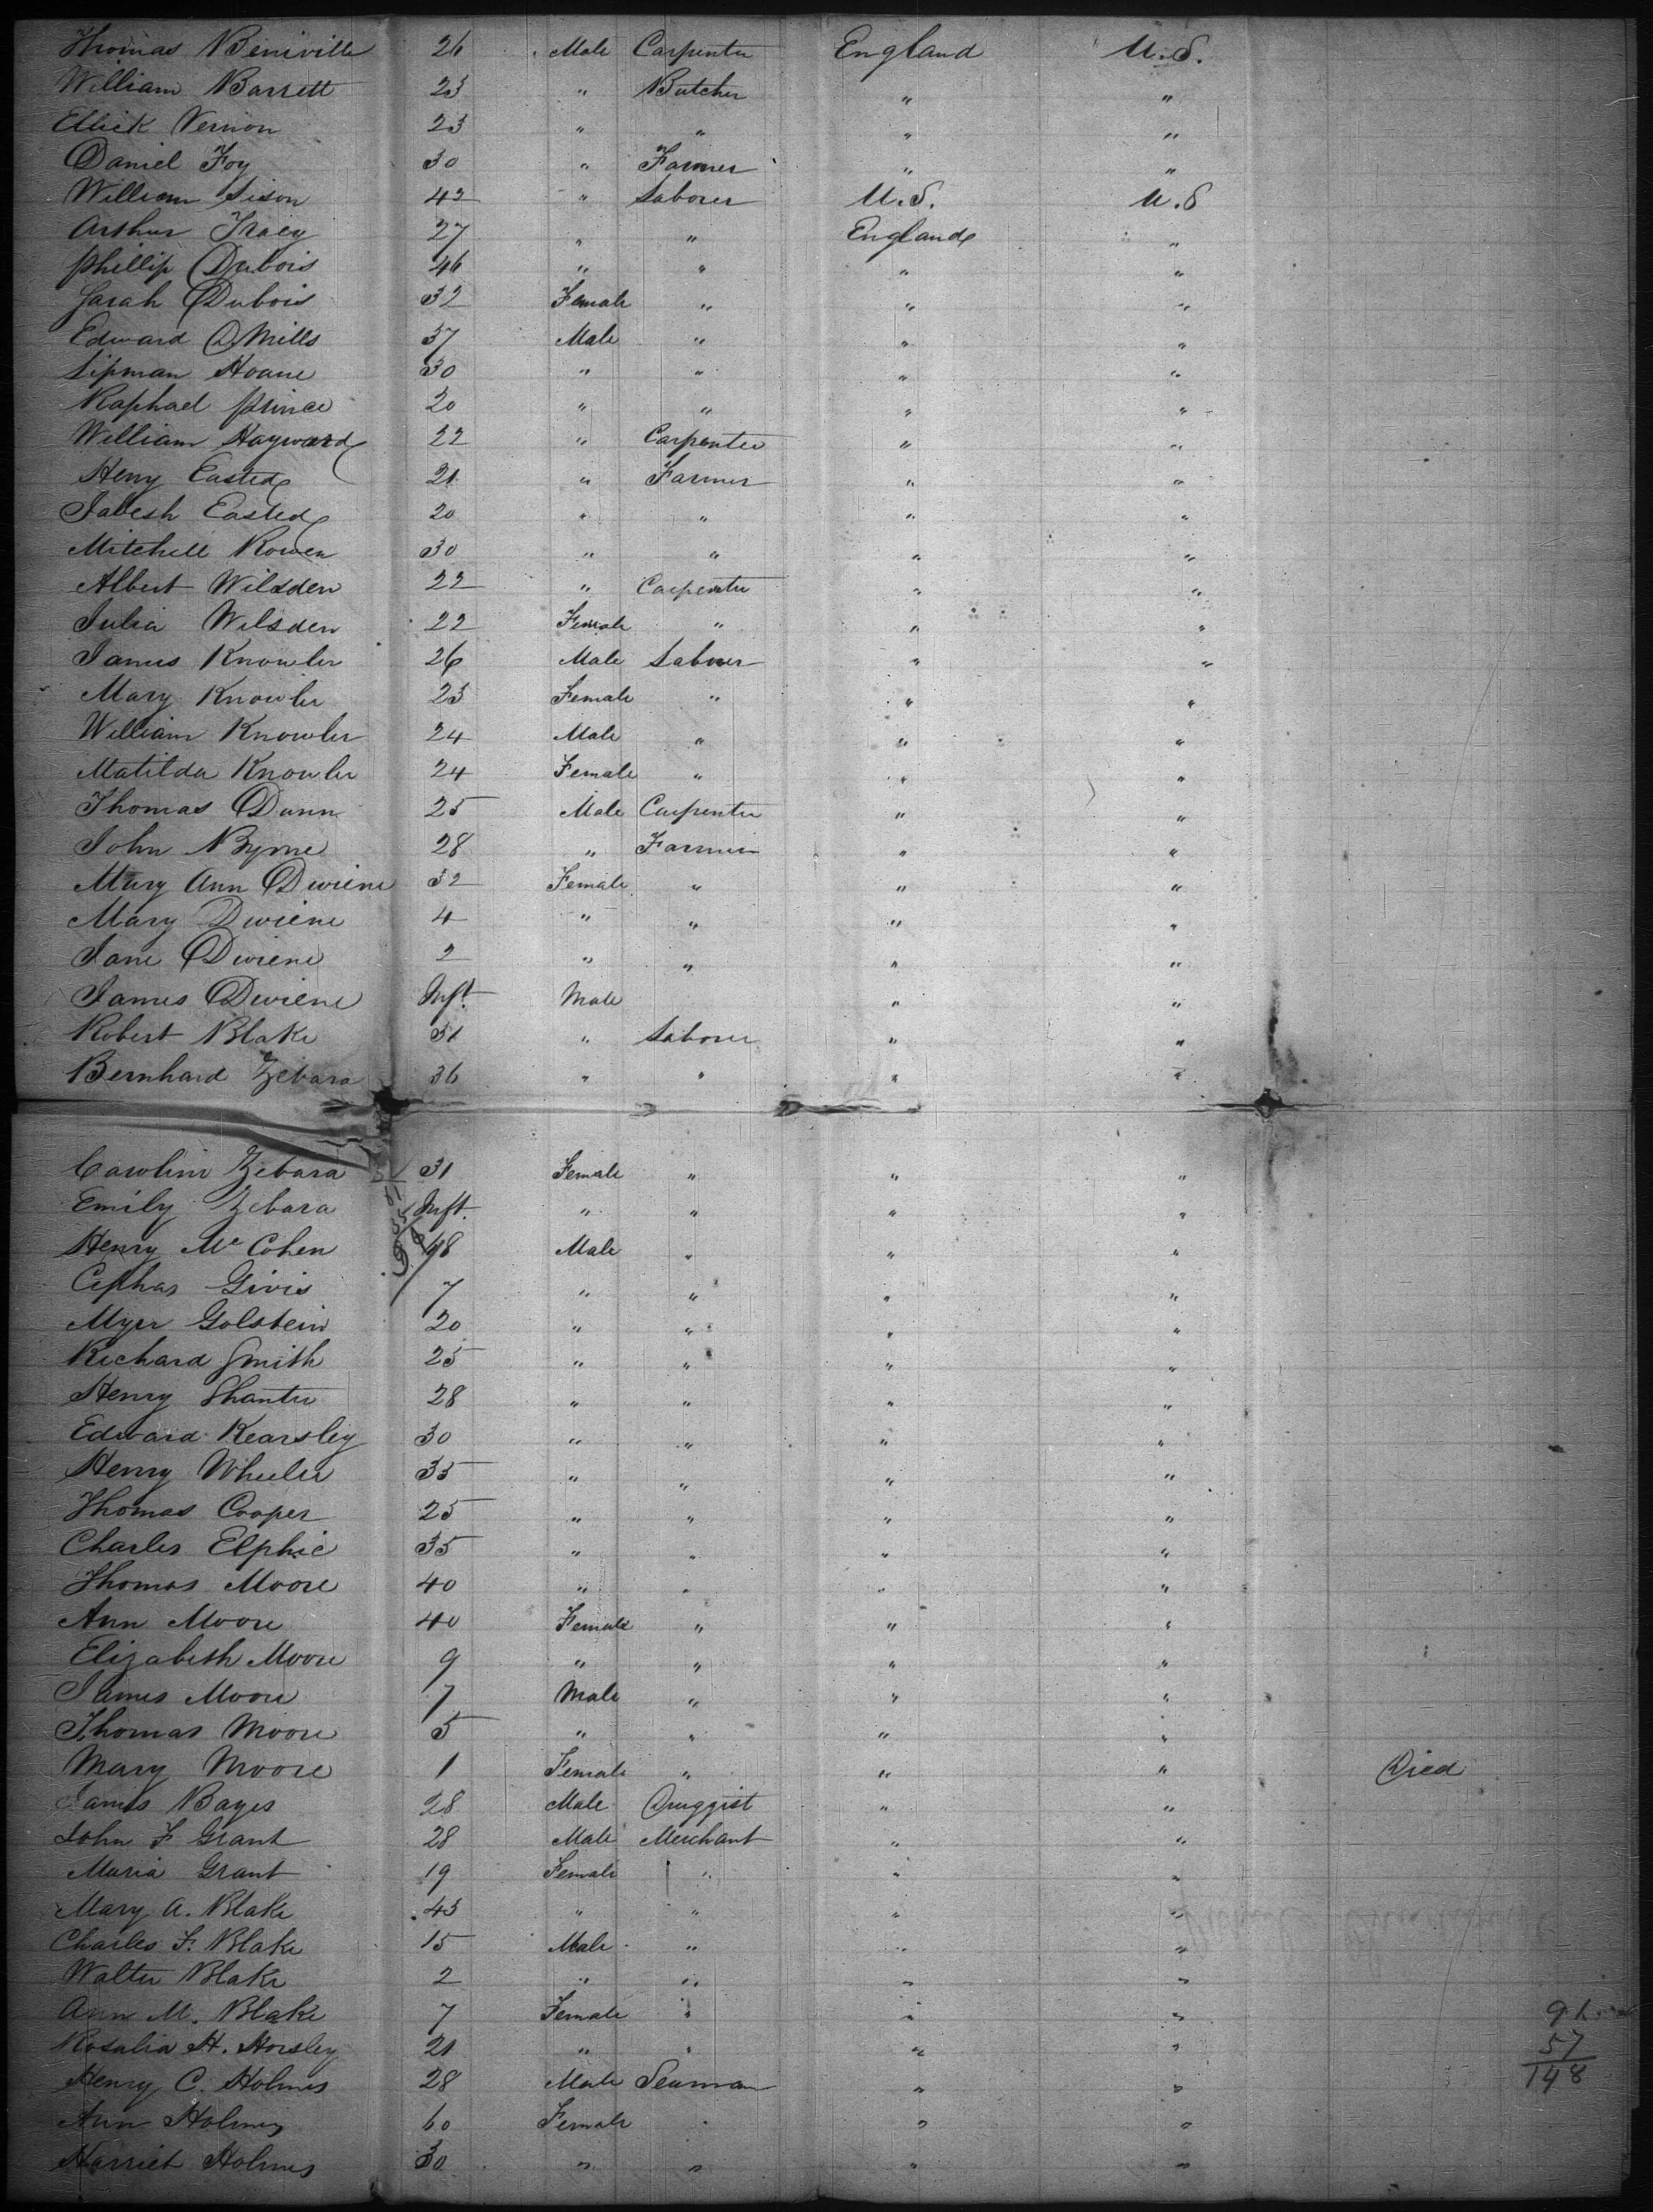 Thomas Beniville 26 Male Carpenter England U.S.
William Barrett 23 " Butcher " "
Ellick Vernon 23 " " " "
Daniel Foy 30 " Farmer " "
William Sison 42 " Laborer U.S. U.S
Arthur Tracy 27 " " England "
Phillip Dubois 46 " " " "
Sarah Dubois 32 Female " " "
Edward O Mills 37 Male " " "
Lipman Hoane 30 " " " "
Raphael Prince 20 " " " "
William Hayward 22 " Carpenter " "
Henry Easted 21 " Farmer " "
Jabesh Easted 20 " " " "
Mitchell Rowen 30 " " " "
Albert Wilsden 22 " Carpenter " "
Julia Wilsden 22 Female " " "
James Knowler 26 Male Laborer " "
Mary Knowler 23 Female " " "
William Knowler 24 Male " " "
Matilda Knowler 24 Female " " "
Thomas Dunn 25 Male Carpenter " "
John Byrne 28 " Farmer " "
Mary Ann Dwiene 32 Female " " "
Mary Dwiene 4 " " " "
Jane Dwiene 2 " " " "
James Dwiene Inft. Male " "
Robert Blake 31 " Laborer " "
Bernhard Zebara 36 " " " "
Caroline Zebara 31 Female " " "
Emily Zebara Inft. " " " "
Henry Mc Cohen 48 Male " " "
Cephas Givis 7 " " " "
Myer Golstein 20 " " " "
Richard Smith 25 " " " "
Henry Shanter 28 " " " "
Edward Kearsley 30 " " " "
Henry Wheeler 35 " " " "
Thomas Cooper 25 " " " "
Charles Elphic 35 " " " "
Thomas Moore 40 " " " "
Ann Moore 40 Female " " "
Elizabeth Moore 9 " " " "
James Moore 7 Male " " "
Thomas Moore 5 " " " "
Mary Moore 1 Female " " " Died
James Bayes 28 Male Druggist " "
John F Grant 28 Male Merchant " "
Maria Grant 19 Female " " "
Mary A. Blake 43 " " " "
Charles F. Blake 15 Male " " "
Walter Blake 2 " " " "
Ann M. Blake 7 Female " " " 91
Rosalia H. Horsley 21 " " " " 57
Henry C. Holmes 28 Male Seaman " " 148
Ann Holmes 60 Female " " "
Harriet Holmes 30 " " " "